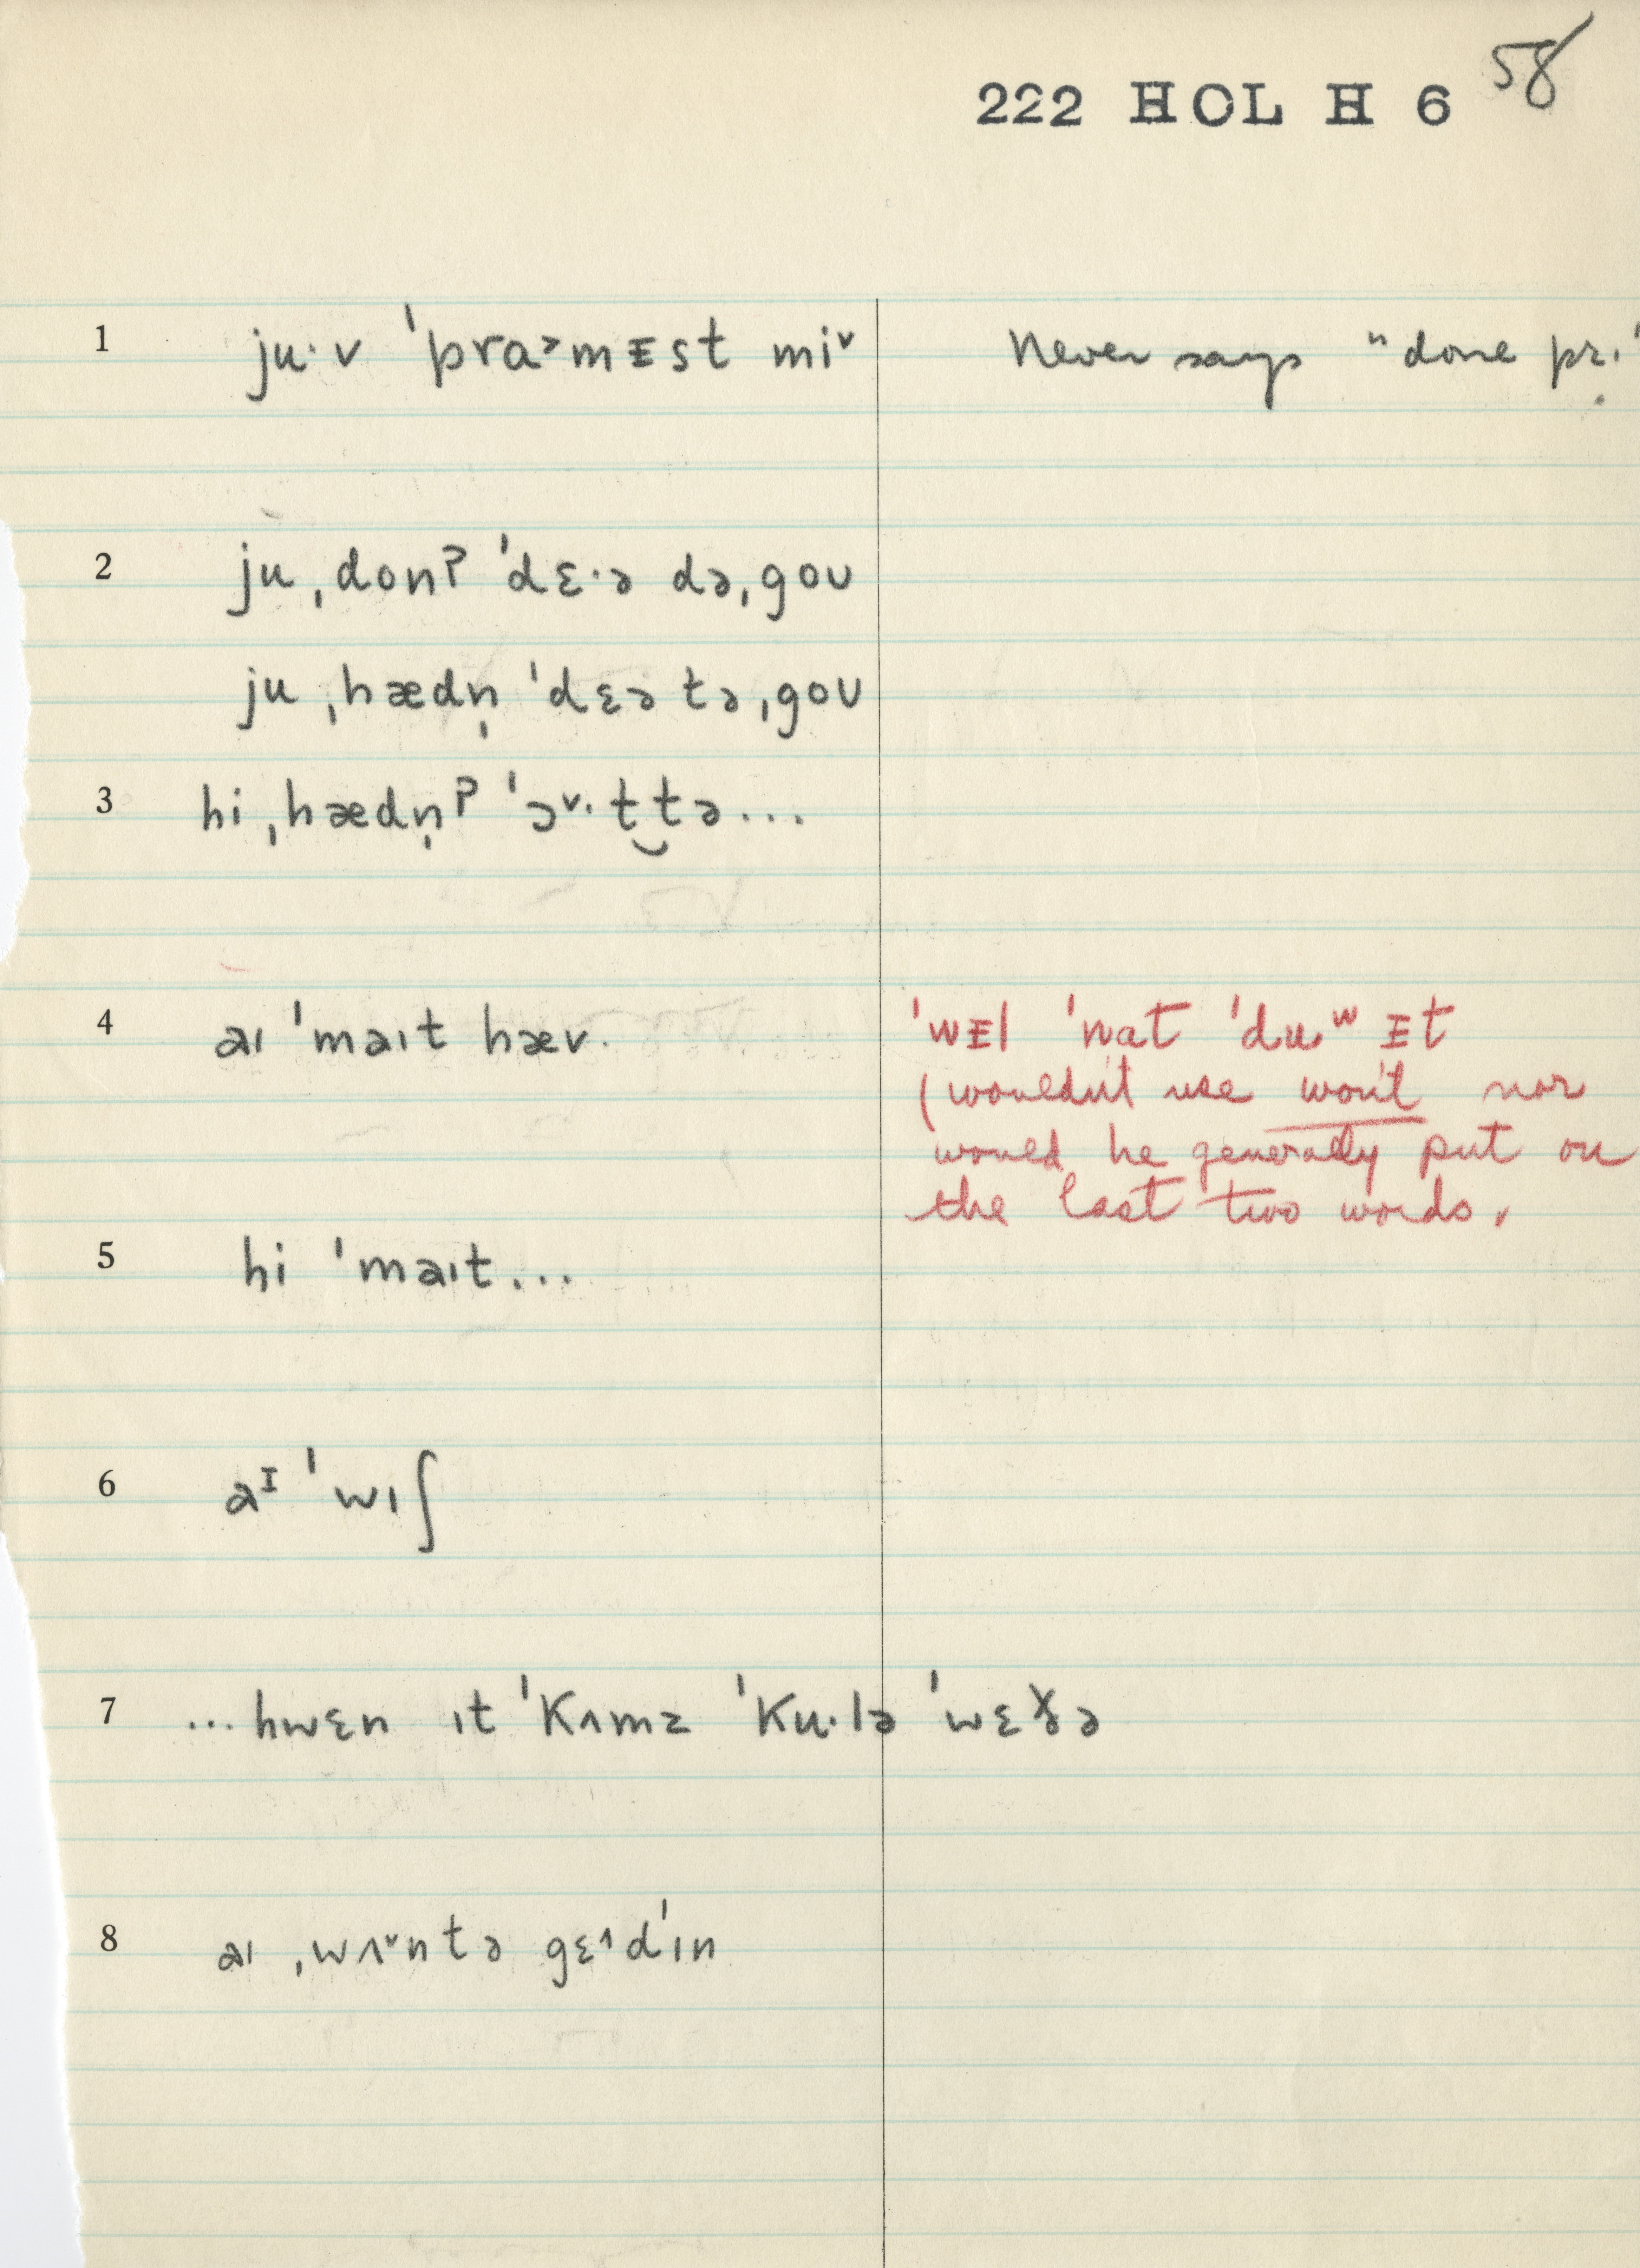 222 HOL H 6 58
1 ju·v ˈpra˃mᴇst miᵛ Never says "done pr."
2 ju ˌdonˀ ˈdɛ·ə dəˌgoʊ
ju ˌhædn̩ ˈdɛə təˌgoʊ
3 hi ˌhædn̩ˀ ˈɔᵛ·t‿tə...
4 aɪ ˈmaɪt hæv. ˈwᴇl ˈnat ˈduʷ ᴇt
(wouldn't use won't nor
would he generally put on
the last two words.
5 hi ˈmaɪt...
6 aᴵ ˈwɪʃ
7 ...hwɛn ɪt ˈkʌmz ˈku·lə ˈwɛɤ̌ə
8 aɪ ˌwʌᵛntə gɛ^dˈɪn